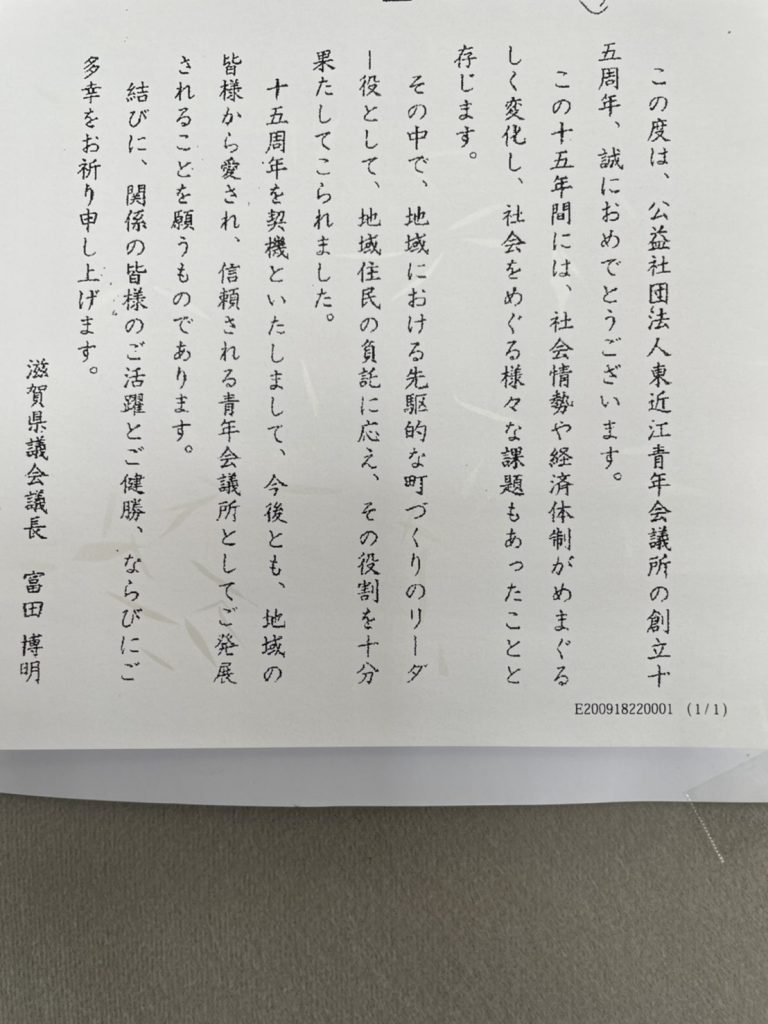 この度は、公益社団法人東近江青年会議所の創立十
五周年、誠におめでとうございます。
この十五年間には、社会情勢や経済体制がめまぐる
しく変化し、社会をめぐる様々な課題もあったことと
存じます。
その中で、地域における先駆的な町づくりのリーダ
ー役として、地域住民の負託に応え、その役割を十分
果たしてこられました。
十五周年を契機といたしまして、今後とも、地域の
皆様から愛され、信頼される青年会議所としてご発展
されることを願うものであります。
結びに、関係の皆様のご活躍とご健勝、ならびにご
多幸をお祈り申し上げます。
滋賀県議会議長 富田 博明
E200918220001 (1/1)